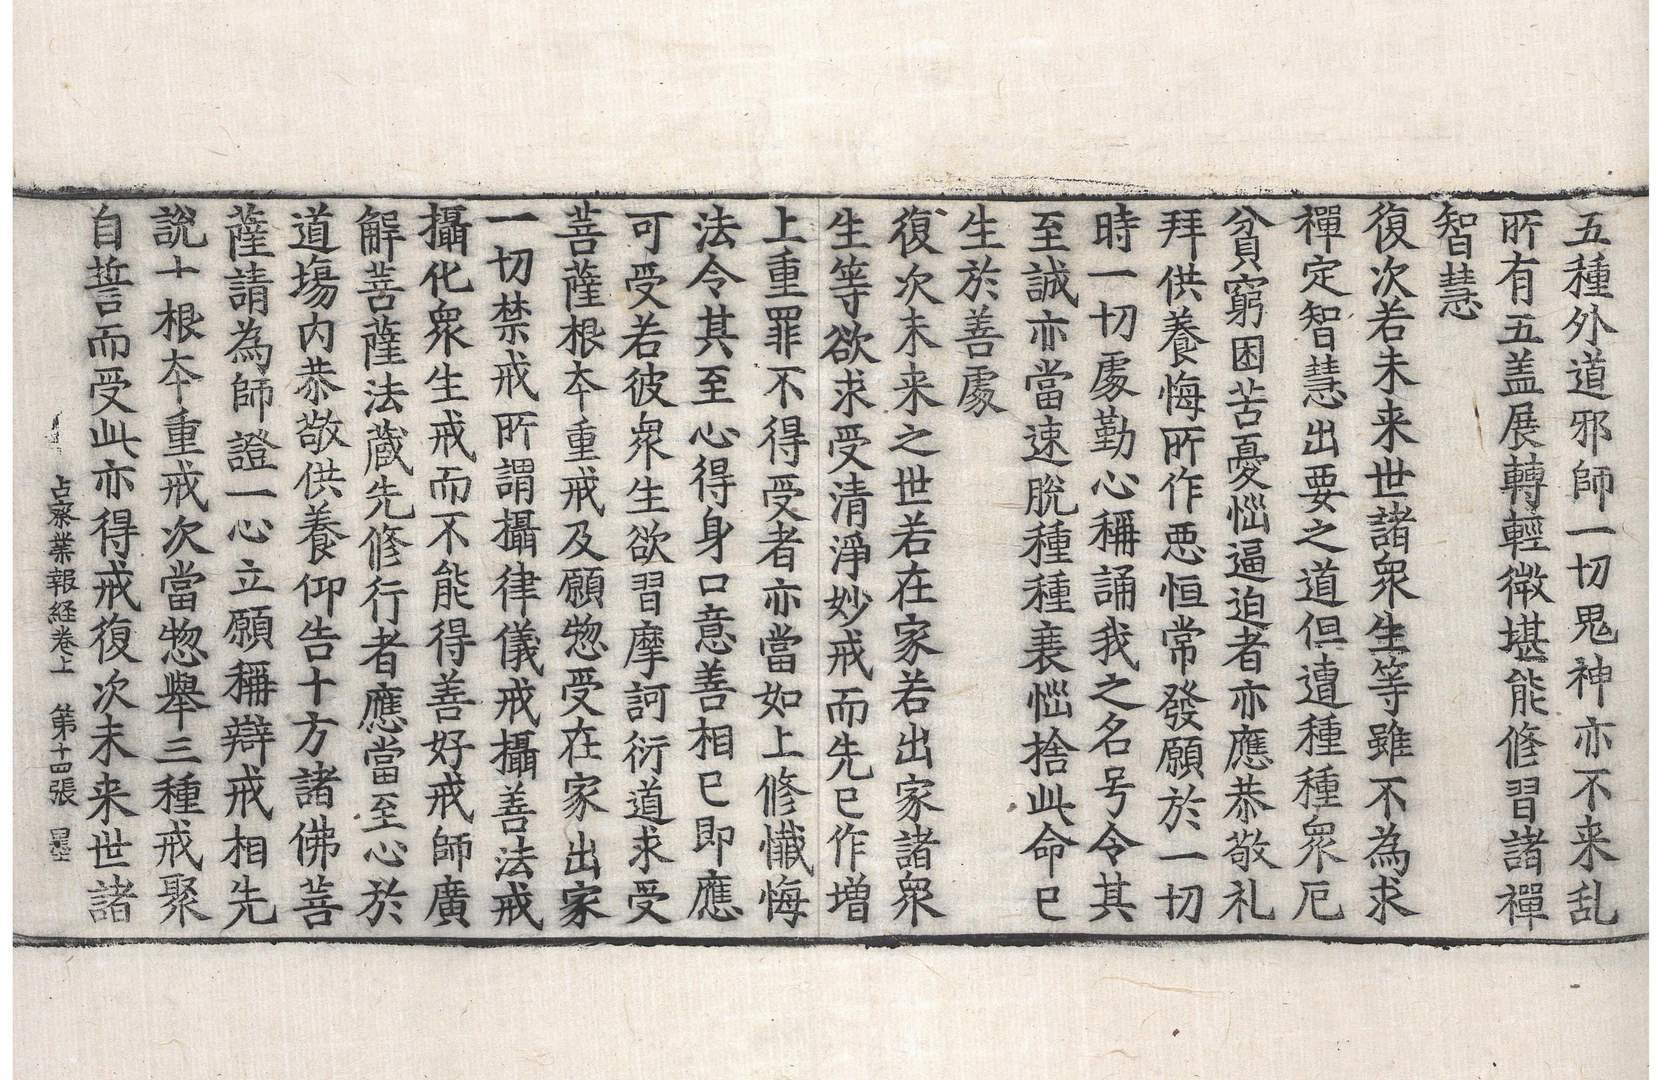 五種外道邪師一切鬼神亦不来乱
所有五盖展轉輕微堪能修習諸禪
智慧
復次若未来世諸衆生等雖不為求
禪定智慧出要之道但遭種種衆厄
貧窮困苦憂惱逼迫者亦應恭敬礼
拜供養悔所作恶恒常發願於一切
時一切處勤心稱誦我之名号令其
至誠亦當速脫種種衰惱捨此命已
生於善處
復次未来之世若在家若出家諸衆
生等欲求受清淨妙戒而先已作增
上重罪不得受者亦當如上修懺悔
法令其至心得身口意善相已即應
可受若彼衆生欲習摩訶衍道求受
菩薩根本重戒及願惣受在家出家
一切禁戒所謂攝律儀戒攝善法戒
攝化衆生戒而不能得善好戒師廣
解菩薩法蔵先修行者應當至心於
道場内恭敬供養仰告十方諸佛菩
薩請為師證一心立願稱辯戒相先
說十根本重戒次當惣舉三種戒聚
自誓而受此亦得戒復次未来世諸
占察業報経卷上　第十四張